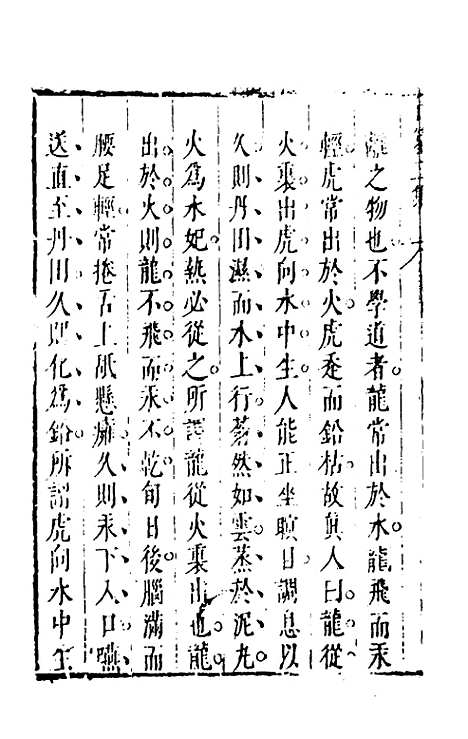 離之物也不學道者龍常出於水龍飛而汞
輕虎常出於火虎走而鉛枯故真人曰龍從
火裏出虎向水中生人能正坐瞑目調息以
久則丹田濕而水上行蓊然如雲蒸於泥丸
火爲水妃熱必從之所謂龍從火裏出也龍
出於火則龍不飛而汞不乾旬日後腦滿而
腰足輕常捲舌上舐懸癰久則汞下入口嚥
送直至丹田久則化爲鉛所謂虎向水中生